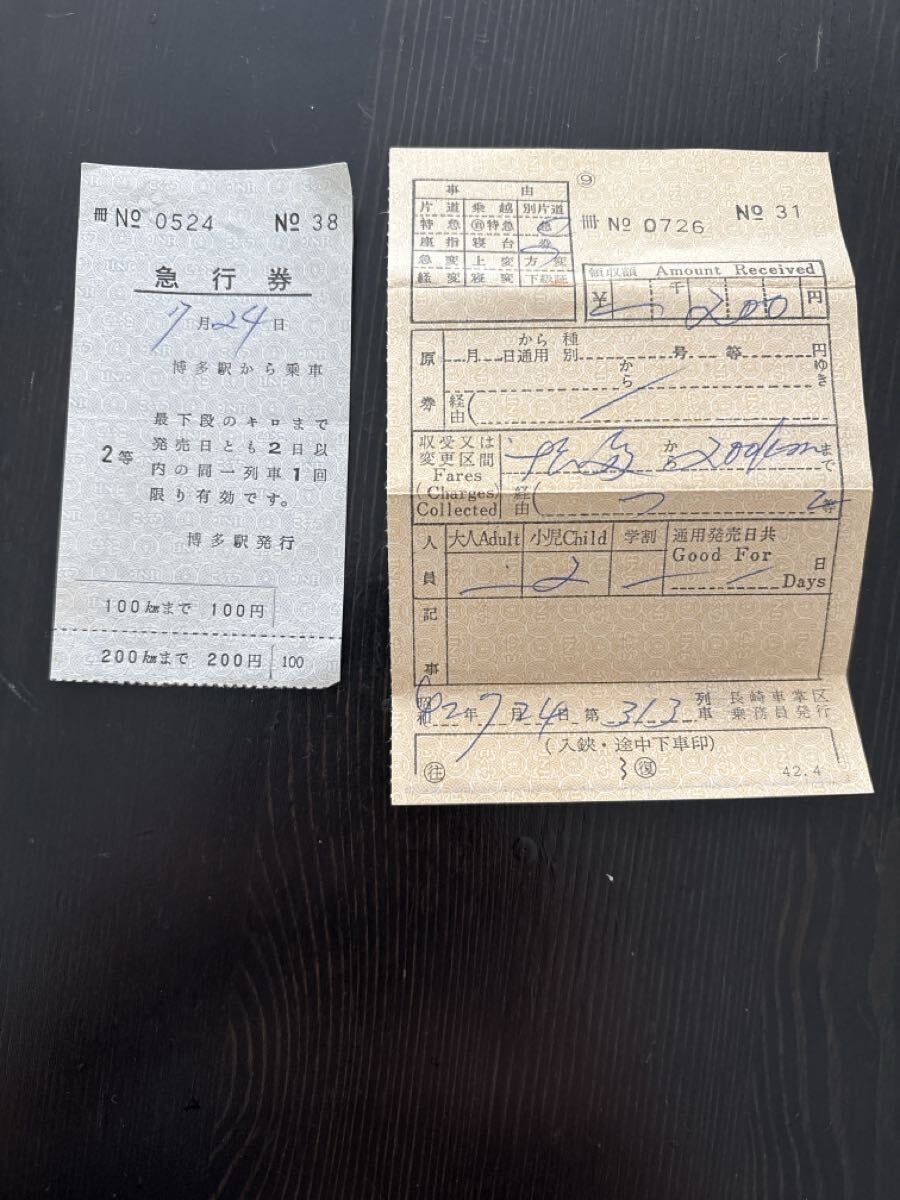 冊 № 0524 № 38
急行券
7月24日
博多駅から乗車
2等
最下段のキロまで
発売日とも2日以
内の同一列車1回
限り有効です。
博多駅発行
100㎞まで 100円
200㎞まで 200円 100
⑨
冊 № 0726 № 31
事由
片道 乗越 別片道
特急 特急 急
座指 寝台 券
急変 上変 方変
経変 寝変 下級
領収額 Amount Received
¥ 千 200 円
原券
月 日から通用 種別 号 等 円
から ゆき
経由(
収受又は変更区間
Fares
(Charges)
Collected
から 200km まで
経由( 2等
人員
大人Adult 小児Child 学割 通用発売日共
2 Good For
日
Days
記事
昭和42年7月24日 第313列車 長崎車掌区乗務員発行
(入鋏・途中下車印)
㊟往 3 復 42.4